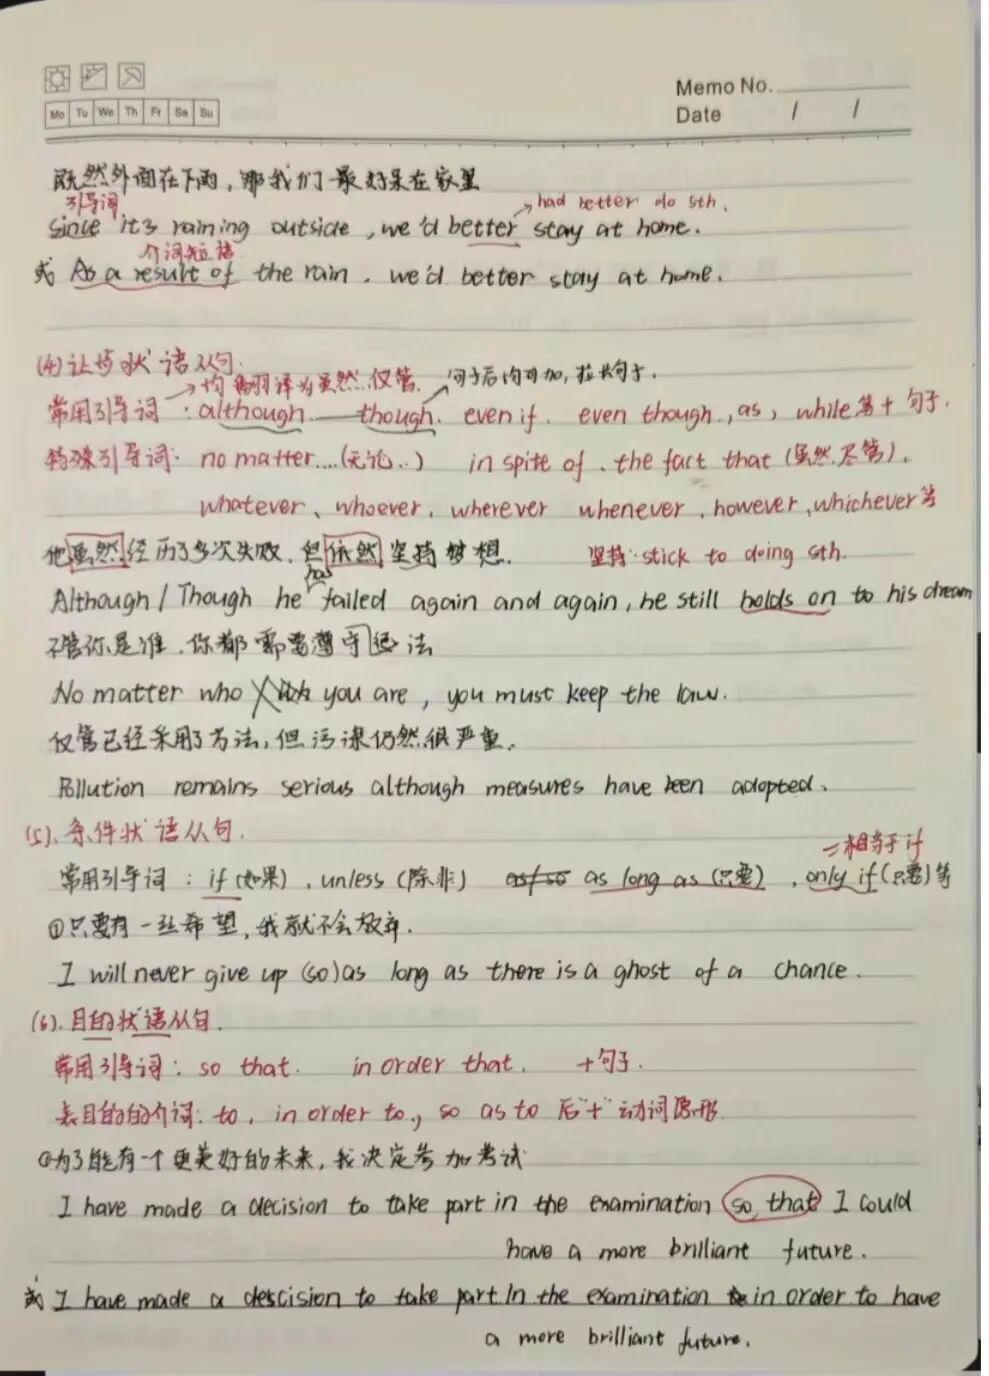 Memo No.
Mo Tu We Th Fr Sa Su
Date / /
既然外面在下雨，那我们最好呆在家里
引导词 had better do sth.
since it's raining outside, we'd better stay at home.
介词短语
或 As a result of the rain. we'd better stay at home.
(4)让步状语从句.
均翻译为虽然.仅管. 句子后均可加，拉长句子.
常用引导词：although though. even if. even though., as, while等+句子.
特殊引导词: no matter....(无论..) in spite of 、the fact that (虽然.尽管).
whatever、whoever. wherever whenever、however、whichever等
他虽然经历了多次失败.但依然坚持梦想. 坚持: stick to doing sth.
has
Although/Though he failed again and again, he still holds on to his dream
不管你是谁.你都需要遵守法
No matter who you are, you must keep the law.
仅管已经采用了方法，但污染仍然很严重.
Pollution remains serious although measures have been adopted.
(5).条件状语从句.
=相当于if
常用引导词：if(如果). unless(除非) as long as(只要), only if(只要)等
①只要有一丝希望，我就不会放弃.
I will never give up (so)as long as there is a ghost of a chance.
(6).目的状语从句.
常用引导词：so that. in order that. +句子.
表目的的介词: to. in order to., so as to 后"+"动词原形.
①为了能有一个更美好的未来，我决定参加考试
I have made a decision to take part in the examination so that I could
have a more brilliant future.
或 I have made a descision to take part In the examination in order to have
a more brilliant future.